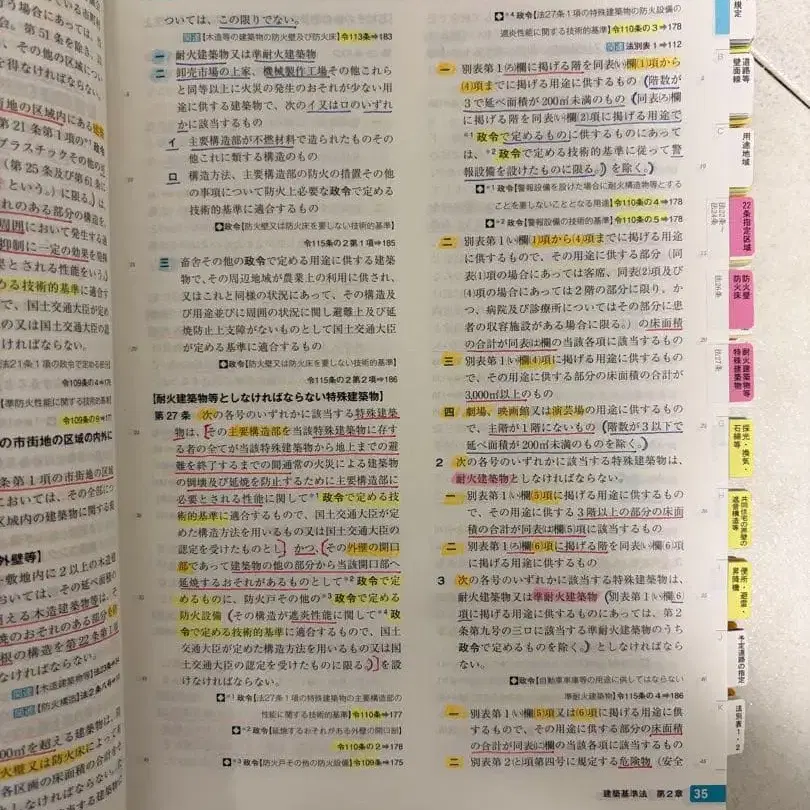 ついては、この限りでない。
関連【木造等の建築物の防火壁及び防火床】令113条⇒183
一 耐火建築物又は準耐火建築物
二 卸売市場の上家、機械製作工場その他これら
と同等以上に火災の発生のおそれが少ない用
途に供する建築物で、次のイ又はロのいずれ
かに該当するもの
イ 主要構造部が不燃材料で造られたものその
他これに類する構造のもの
ロ 構造方法、主要構造部の防火の措置その他
の事項について防火上必要な政令で定める
技術的基準に適合するもの
政令【防火壁又は防火床を要しない技術的基準】
令115条の2第1項⇒185
三 畜舎その他の政令で定める用途に供する建築
物で、その周辺地域が農業上の利用に供され、
又はこれと同様の状況にあって、その構造及
び用途並びに周囲の状況に関し避難上及び延
焼防止上支障がないものとして国土交通大臣
が定める基準に適合するもの
政令【防火壁又は防火床を要しない技術的基準】
令115条の2第2項⇒186
【耐火建築物等としなければならない特殊建築物】
第27条 次の各号のいずれかに該当する特殊建築
物は、その主要構造部を当該特殊建築物に存す
る者の全てが当該特殊建築物から地上までの避
難を終了するまでの間通常の火災による建築物
の倒壊及び延焼を防止するために主要構造部に
必要とされる性能に関して*1政令で定める技
術的基準に適合するもので、国土交通大臣が定
めた構造方法を用いるもの又は国土交通大臣の
認定を受けたものとし、かつ、その外壁の開口
部であって建築物の他の部分から当該開口部へ
延焼するおそれがあるものとして*2政令で定
めるものに、防火戸その他の*3政令で定める
防火設備(その構造が遮炎性能に関して*4政
令で定める技術的基準に適合するもので、国土
交通大臣が定めた構造方法を用いるもの又は国
土交通大臣の認定を受けたものに限る。)を設
けなければならない。
*1政令【法27条1項の特殊建築物の主要構造部の
性能に関する技術的基準】令110条⇒177
*2政令【延焼するおそれがある外壁の開口部】
令110条の2⇒178
*3政令【防火戸その他の防火設備】令109条⇒175
*4政令【法27条1項の特殊建築物の防火設備の
遮炎性能に関する技術的基準】令110条の3⇒178
関連 法別表1⇒112
一 別表第1(ろ)欄に掲げる階を同表(い)欄(1)項から
(4)項までに掲げる用途に供するもの(階数が
3で延べ面積が200㎡未満のもの(同表(ろ)欄
に掲げる階を同表(い)欄(2)項に掲げる用途で
*1政令で定めるものに供するものにあって
は、*2政令で定める技術的基準に従って警
報設備を設けたものに限る。)を除く。)
*1政令【警報設備を設けた場合に耐火構造物等とする
ことを要しないこととなる用途】令110条の4⇒178
*2政令【警報設備の技術的基準】令110条の5⇒178
二 別表第1(い)欄(1)項から(4)項までに掲げる用途
に供するもので、その用途に供する部分(同
表(1)項の場合にあっては客席、同表(2)項及び
(4)項の場合にあっては2階の部分に限り、か
つ、病院及び診療所についてはその部分に患
者の収容施設がある場合に限る。)の床面積
の合計が同表(は)欄の当該各項に該当するもの
三 別表第1(い)欄(4)項に掲げる用途に供するもの
で、その用途に供する部分の床面積の合計が
3,000㎡以上のもの
四 劇場、映画館又は演芸場の用途に供するもの
で、主階が1階にないもの(階数が3以下で
延べ面積が200㎡未満のものを除く。)
2 次の各号のいずれかに該当する特殊建築物は、
耐火建築物としなければならない。
一 別表第1(い)欄(5)項に掲げる用途に供するもの
で、その用途に供する3階以上の部分の床面
積の合計が同表(は)欄(5)項に該当するもの
二 別表第1(ろ)欄(6)項に掲げる階を同表(い)欄(6)項
に掲げる用途に供するもの
3 次の各号のいずれかに該当する特殊建築物は、
耐火建築物又は準耐火建築物(別表第1(い)欄(6)
項に掲げる用途に供するものにあっては、第2
条第九号の三ロに該当する準耐火建築物のうち
政令で定めるものを除く。)としなければなら
ない。
政令【自動車車庫等の用途に供してはならない
準耐火建築物】令115条の4⇒186
一 別表第1(い)欄(5)項又は(6)項に掲げる用途に供
するもので、その用途に供する部分の床面積
の合計が同表(に)欄の当該各項に該当するもの
二 別表第2(と)項第四号に規定する危険物(安全
建築基準法 第2章 35
規定
道路等
壁面線
用途地域
22条指定区域
防火壁
防火床
耐火建築物等
特殊建築物
採光・換気・
石綿等
共同住宅の界壁の
遮音構造等
便所・避雷・
昇降機
予定道路の指定
法別表1・2